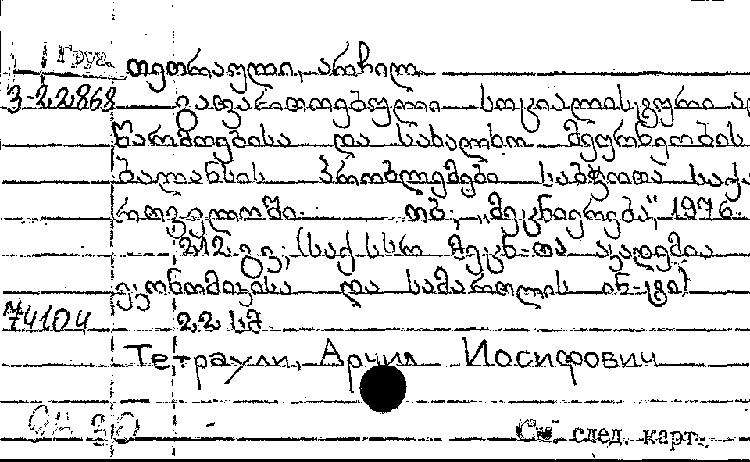 Груз.
თეთრაული, არჩილ
3-22868
გაფართოებული სოციალისტური
წარმოებისა და სახალხო მეურნეობის
ბალანსის პრობლემები საბჭოთა საქა
რთველოში. თბ., „მეცნიერება“, 1976.
212 გვ; (საქ სსრ მეცნ-თა აკადემია
ეკონომიკისა და სამართლის ინ-ტი)
74104
22 სმ
Тетраули, Арчил Иосифович
См. след. карт.